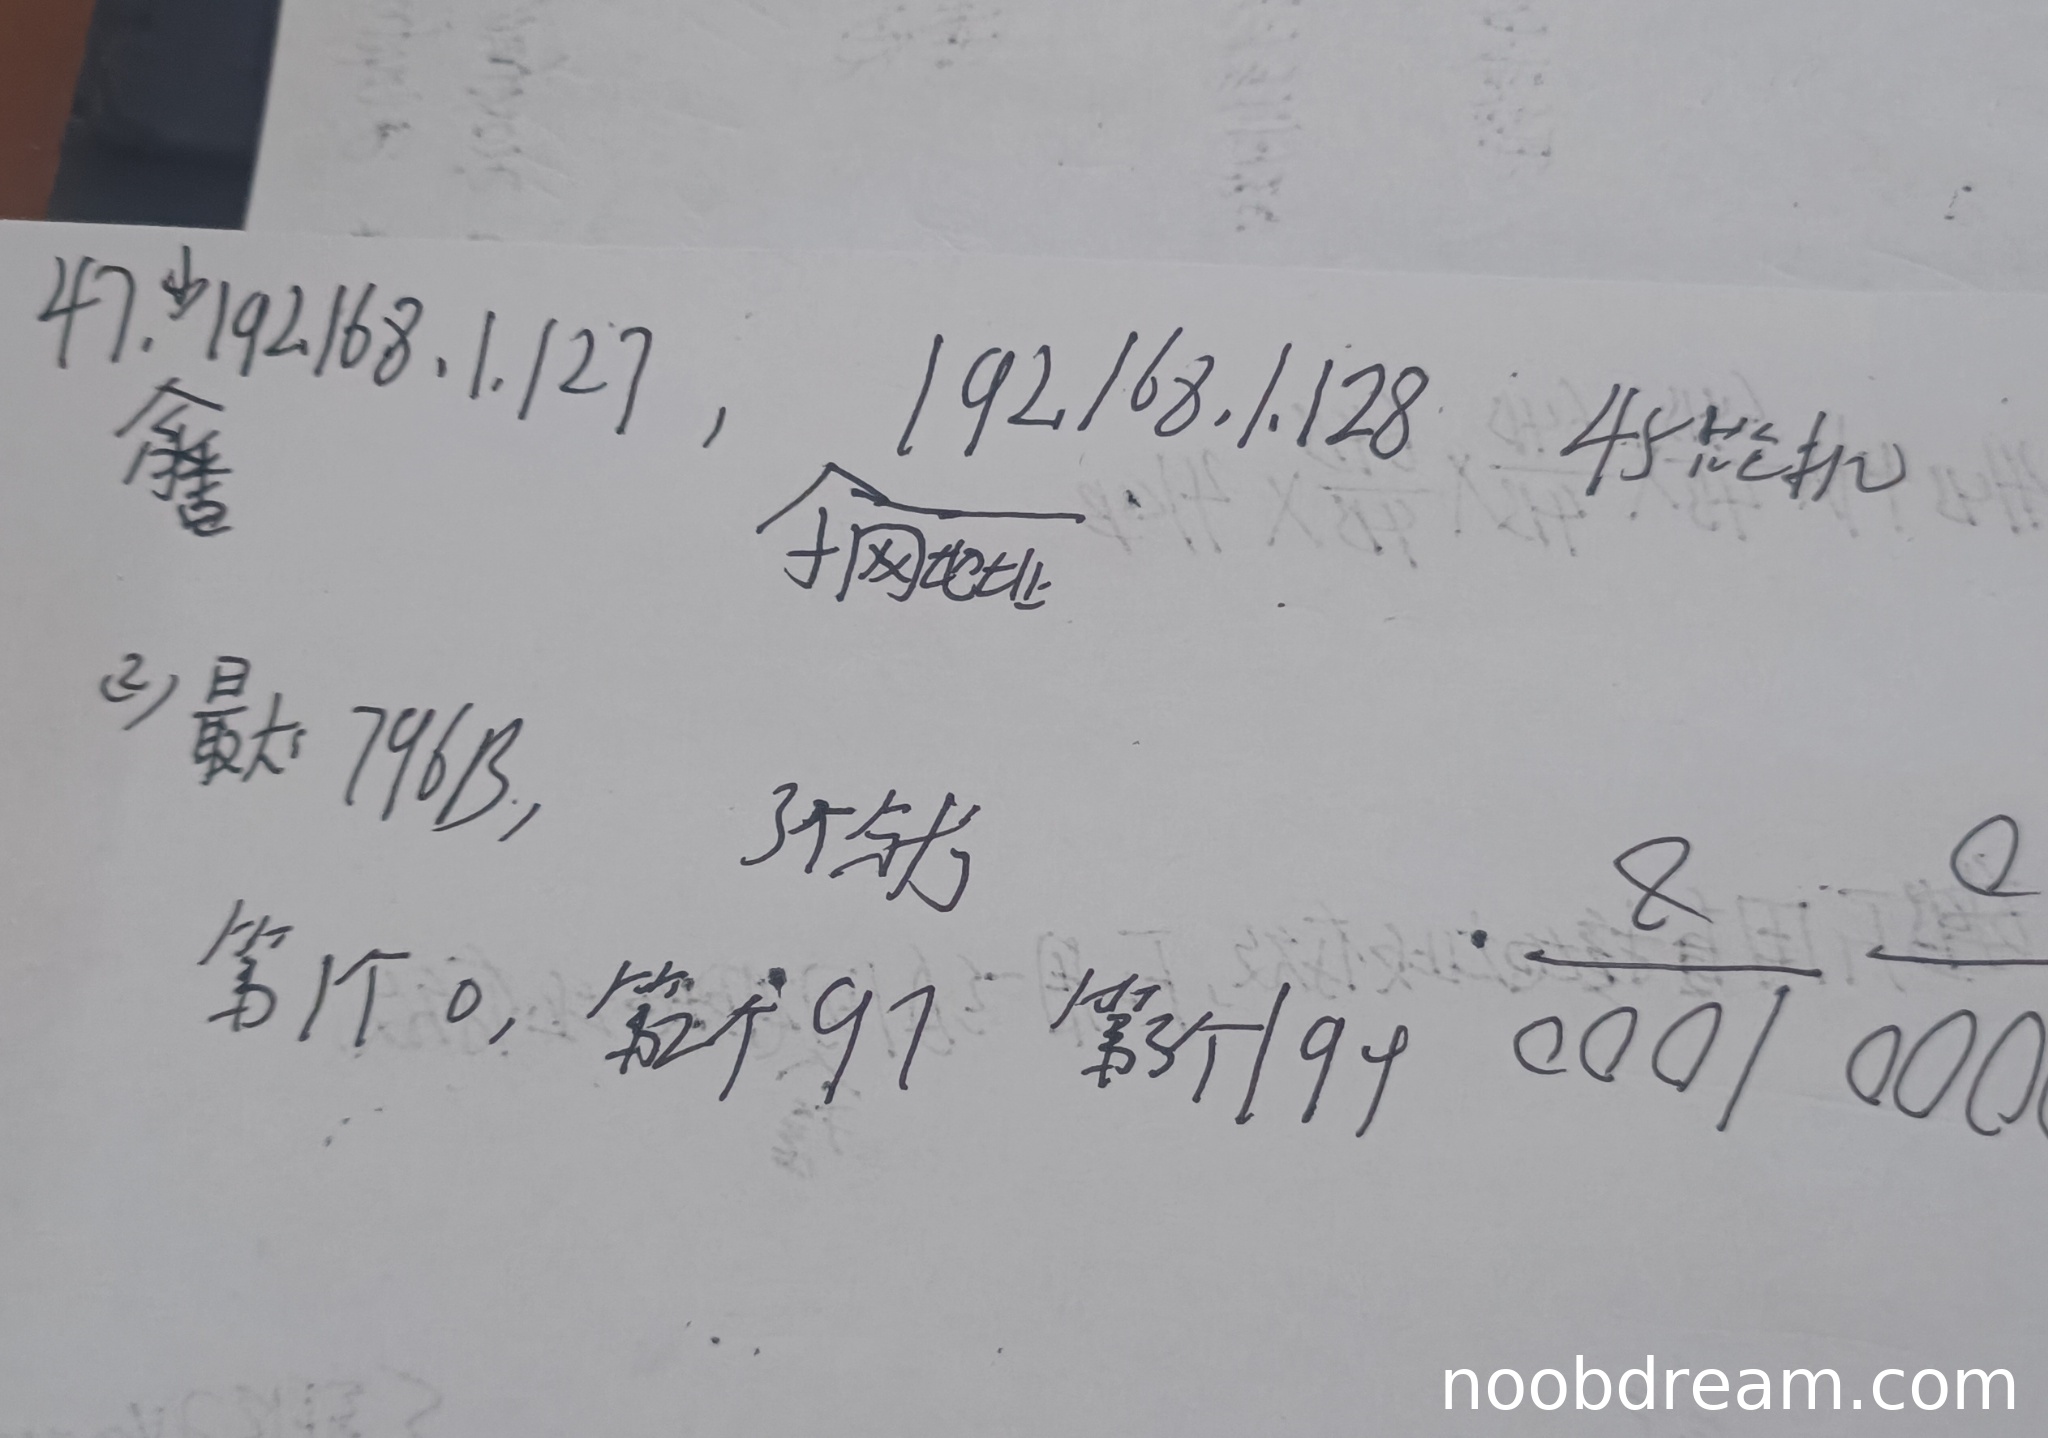 47. (1) 192.168.1.127, 192.168.1.128 45
子网地址
(2) 最大 796B, 3个
第1个 0, 第2个 97 第3个 194
8 0
0001 000
noobdream.com